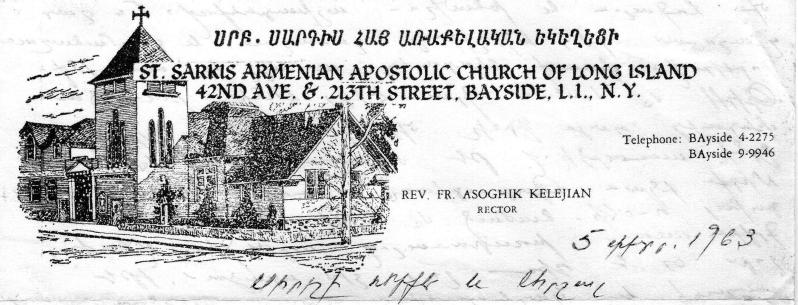 ՍՐԲ. ՍԱՐԳԻՍ ՀԱՅ ԱՌԱՔԵԼԱԿԱՆ ԵԿԵՂԵՑԻ
ST. SARKIS ARMENIAN APOSTOLIC CHURCH OF LONG ISLAND
42ND AVE. & 213TH STREET, BAYSIDE, L.I., N.Y.
Telephone: BAyside 4-2275
BAyside 9-9946
REV. FR. ASOGHIK KELEJIAN
RECTOR
5 1963